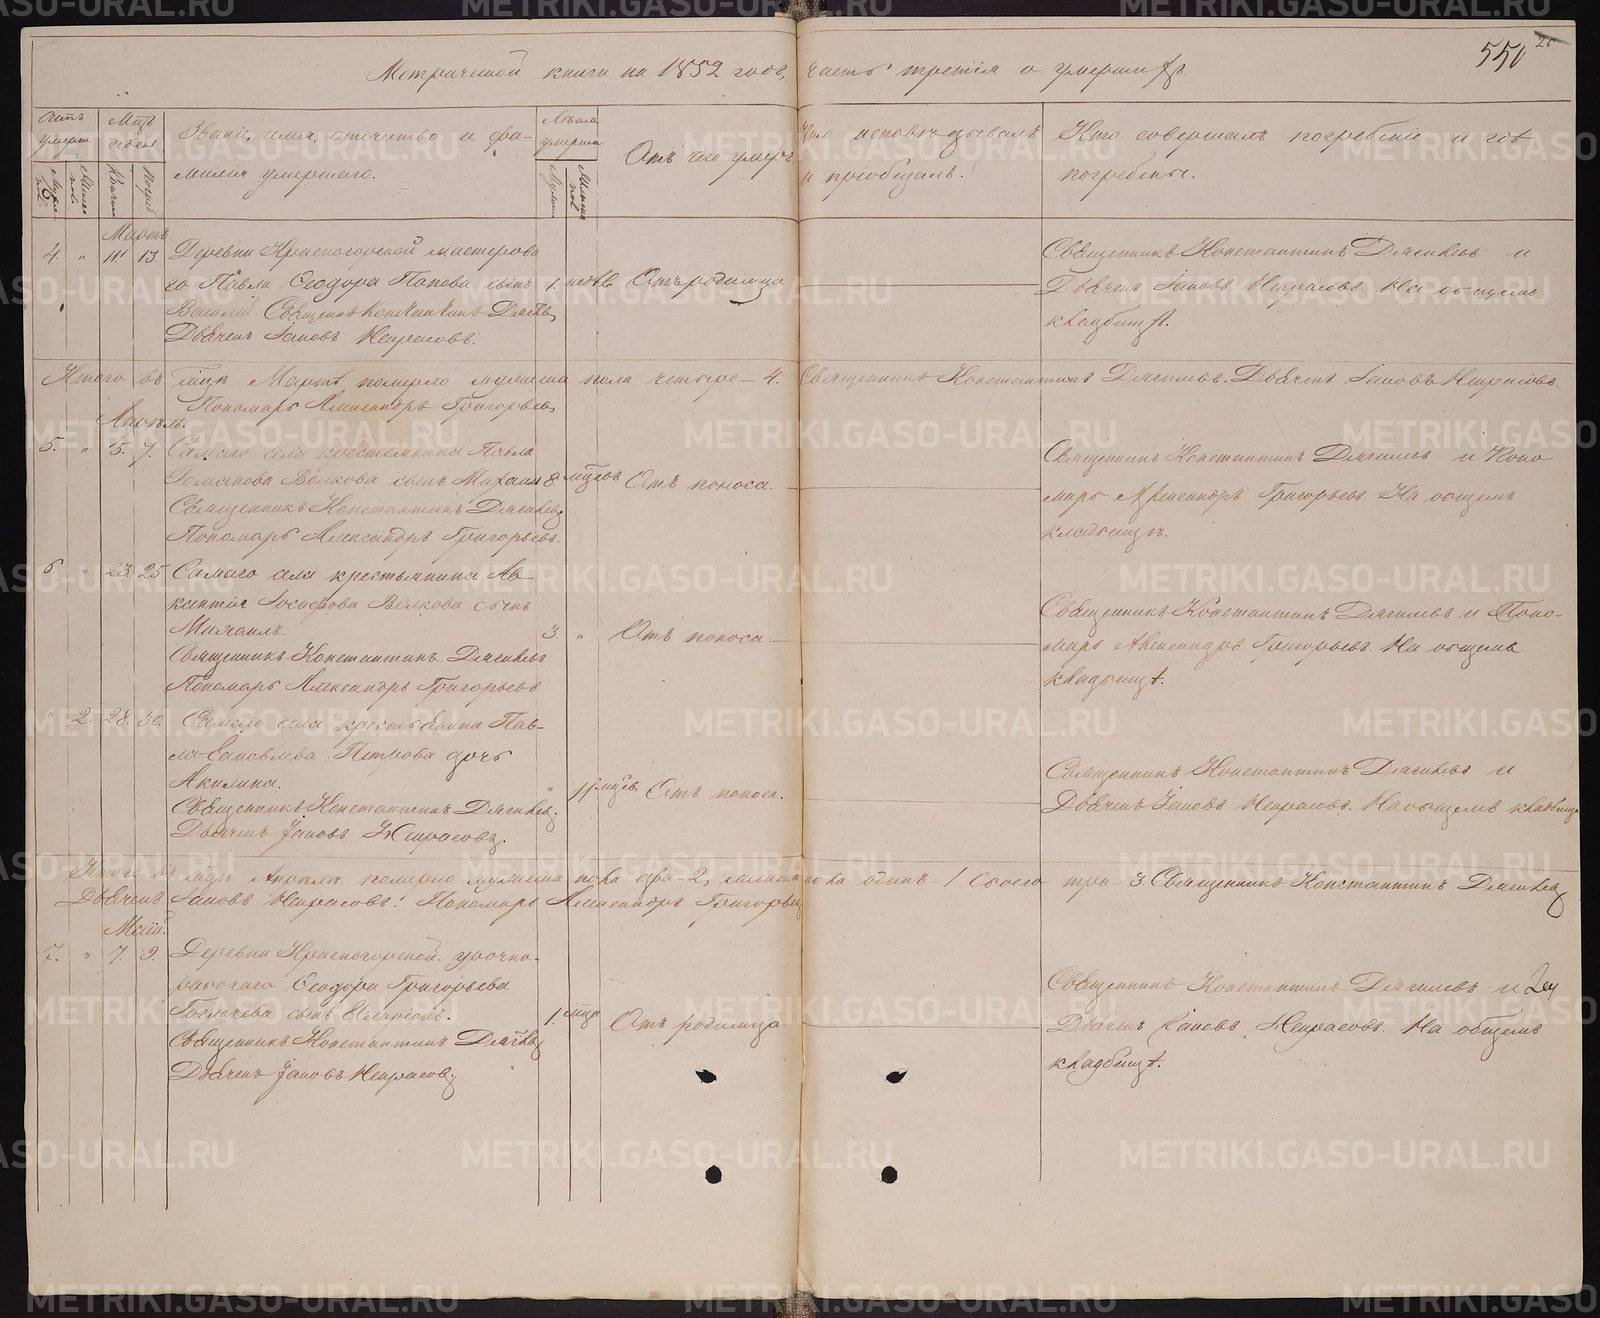 Метрической книги на 1852 годъ, часть третія о умершихъ.
550
26
Счетъ умерш
Мцъ и день
Званіе, имя, отечество и фамилія умершаго.
Лѣта умерша
Отъ чего умеръ
Кто исповѣдывалъ и пріобщалъ.
Кто совершалъ погребеніе и гдѣ погребены.
Мартъ
4. " 11 13. Деревни Красногорской мастерова
го Павла Ѳеодора Попова сынъ 1. Отъ родимца
Василій. Священникъ Константинъ Дягилевъ
Дьячекъ Іаковъ Некрасовъ.
Священникъ Константинъ Дягилевъ и
Дьячекъ Іаковъ Некрасовъ. На общемъ
кладбищѣ.
Итого въ мцѣ Мартѣ померло мужеска пола четыре - 4. Священникъ Константинъ Дягилевъ. Дьячекъ Іаковъ Некрасовъ.
Пономарь Александръ Григорьевъ
Апрѣль.
5. " 5. 7. Самаго села крестьянина Павла
Волкова сынъ Михаилъ 8. мцовъ Отъ поноса.
Священникъ Константинъ Дягилевъ
Пономарь Александръ Григорьевъ.
Священникъ Константинъ Дягилевъ и Поно
марь Александръ Григорьевъ. На общемъ
кладбищѣ.
6. " 23. 25 Самаго села крестьянина Ав-
ксентія Іосифова Волкова сынъ
Михаилъ. 3. " Отъ поноса.
Священникъ Константинъ Дягилевъ
Пономарь Александръ Григорьевъ
Священникъ Константинъ Дягилевъ и Поно-
марь Александръ Григорьевъ. На общемъ
кладбищѣ.
" 2. 28. 30. Самаго села крестьянина Пав-
ла Іаковлева Петрова дочь
Акилина. " 11 мцовъ Отъ поноса.
Священникъ Константинъ Дягилевъ.
Дьячекъ Іаковъ Некрасовъ.
Священникъ Константинъ Дягилевъ и
Дьячекъ Іаковъ Некрасовъ. На общемъ кладбищѣ
Итого въ мцѣ Апрѣлѣ померло мужеска пола два - 2, женска пола одинъ - 1 обоего три - 3. Священникъ Константинъ Дягилевъ
Дьячекъ Іаковъ Некрасовъ. Пономарь Александръ Григорьевъ
Май.
7. " 7. 9. Деревни Красногорской урочно-
рабочаго Ѳеодора Григорьева
сынъ 1. мцъ Отъ родимца
Священникъ Константинъ Дягилевъ
Дьячекъ Іаковъ Некрасовъ
Священникъ Константинъ Дягилевъ и
Дьячекъ Іаковъ Некрасовъ. На общемъ
кладбищѣ.
METRIKI.GASO-URAL.RU